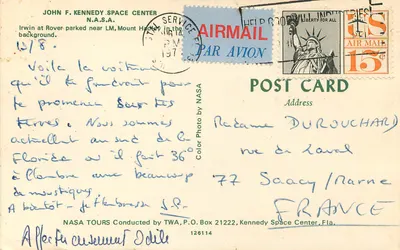 JOHN F. KENNEDY SPACE CENTER
N.A.S.A.
Irwin at Rover parked near LM, Mount H
background.
12/8.
Voila la voiture
qu'il te faudrait pour
te promener dans tes
terres. Nous sommes
actuellement au sud de la
Floride où il fait 36°
à l'ombre avec beaucoup
de moustiques.
A bientôt - je t'embrasse
Affectueusement Odile
Color Photo by NASA
AIRMAIL
PAR AVION
SERVICE
PM
197
HELP
LIBERTY FOR ALL
US
AIR MAIL
15c
POST CARD
Address
Madame DUROUCHARD
rue de Laval
77 Saacy/Marne
FRANCE
NASA TOURS Conducted by TWA, P.O. Box 21222, Kennedy Space Center, Fla.
126114